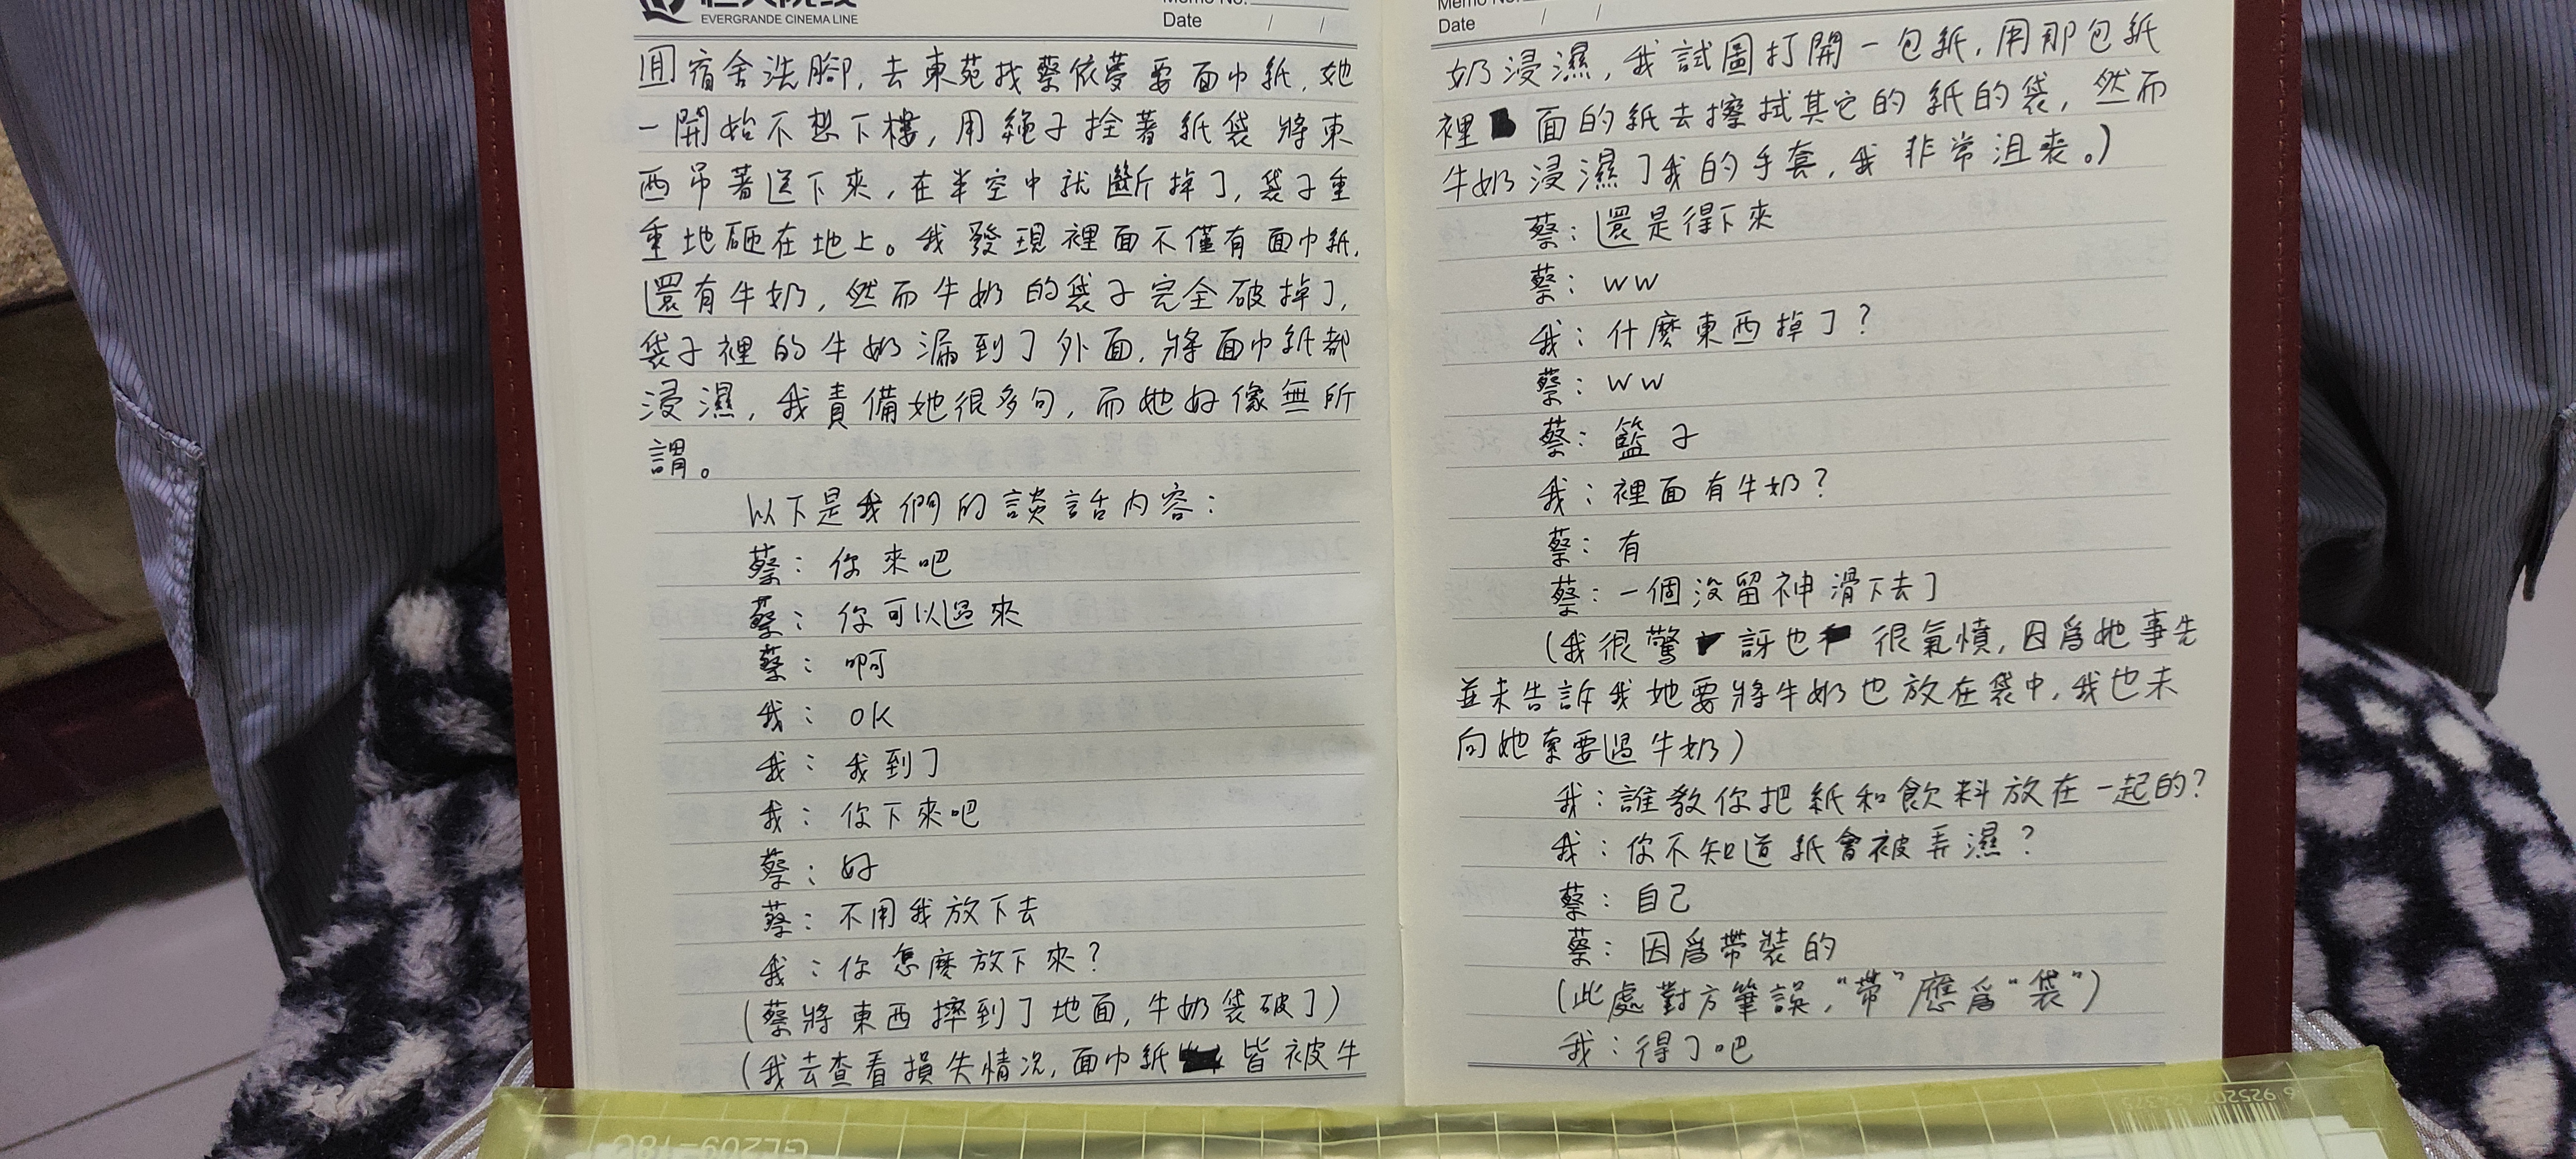 EVERGRANDE CINEMA LINE
Date / /
回宿舍洗腳，去東苑找蔡依夢要面巾紙，她
一開始不想下樓，用繩子拴著紙袋將東
西吊著送下來，在半空中就斷掉了，袋子重
重地砸在地上。我發現裡面不僅有面巾紙，
還有牛奶，然而牛奶的袋子完全破掉了，
袋子裡的牛奶漏到了外面，將面巾紙都
浸濕，我責備她很多句，而她好像無所
謂。
以下是我們的談話内容：
蔡：你來吧
蔡：你可以過來
蔡：啊
我：OK
我：我到了
我：你下來吧
蔡：好
蔡：不用我放下去
我：你怎麼放下來？
（蔡將東西摔到了地面，牛奶袋破了）
（我去查看損失情況，面巾紙皆被牛
Date / /
奶浸濕，我試圖打開一包紙，用那包紙
裡面的紙去擦拭其它的紙的袋，然而
牛奶浸濕了我的手套，我非常沮喪。）
蔡：還是得下來
蔡：ww
我：什麼東西掉了？
蔡：ww
蔡：籃子
我：裡面有牛奶？
蔡：有
蔡：一個沒留神滑下去了
（我很驚訝也很氣憤，因爲她事先
並未告訴我她要將牛奶也放在袋中，我也未
向她索要過牛奶）
我：誰教你把紙和飲料放在一起的？
我：你不知道紙會被弄濕？
蔡：自己
蔡：因爲帶裝的
（此處對方筆誤，“帶”應爲“袋”）
我：得了吧